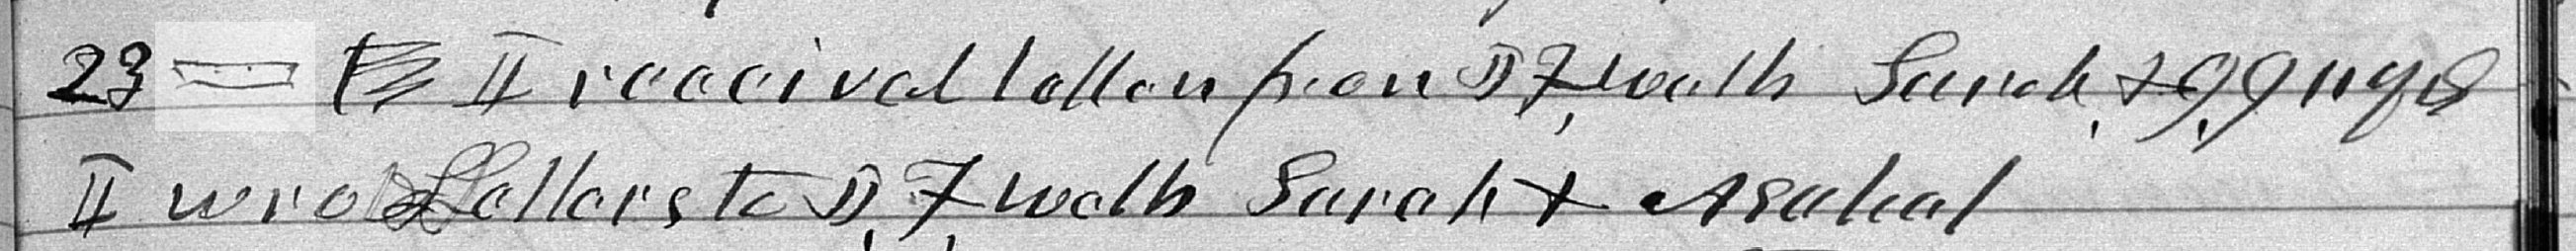 23 = II received letter from D, 7, wells Sarah, & 9, 9
II wrote Letters to D, 7, wells Sarah & Asahal